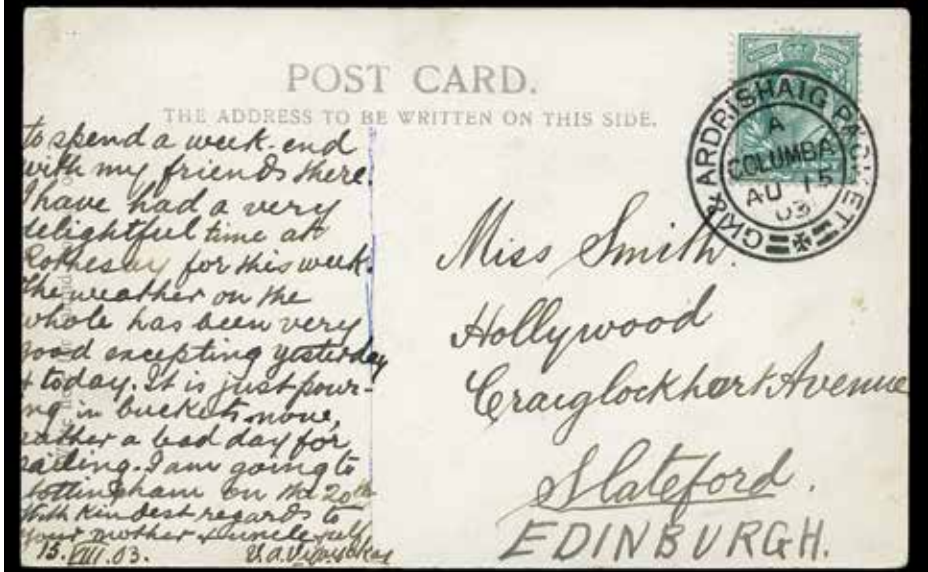 POST CARD.
THE ADDRESS TO BE WRITTEN ON THIS SIDE.
to spend a week-end
with my friends there.
I have had a very
delightful time at
Rothesay for this week.
The weather on the
whole has been very
good excepting yesterday
& today. It is just pour-
ing in buckets now,
rather a bad day for
sailing. I am going to
Nottingham on the 20th
With kindest regards to
your mother & uncle
15.VIII.03.
Miss Smith.
Hollywood
Craiglockhart Avenue
Slateford.
EDINBURGH.
GK & ARDRISHAIG PACKET
A
COLUMBA
AU 15
03